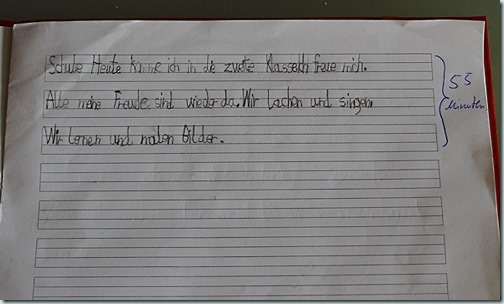 Schule Heute komme ich in die zweite Klasse Ich freue mich.
Alle meine Freude sind wieder da. Wir Lachen und singen.
Wir lernen und malen Bilder.
55
Minuten